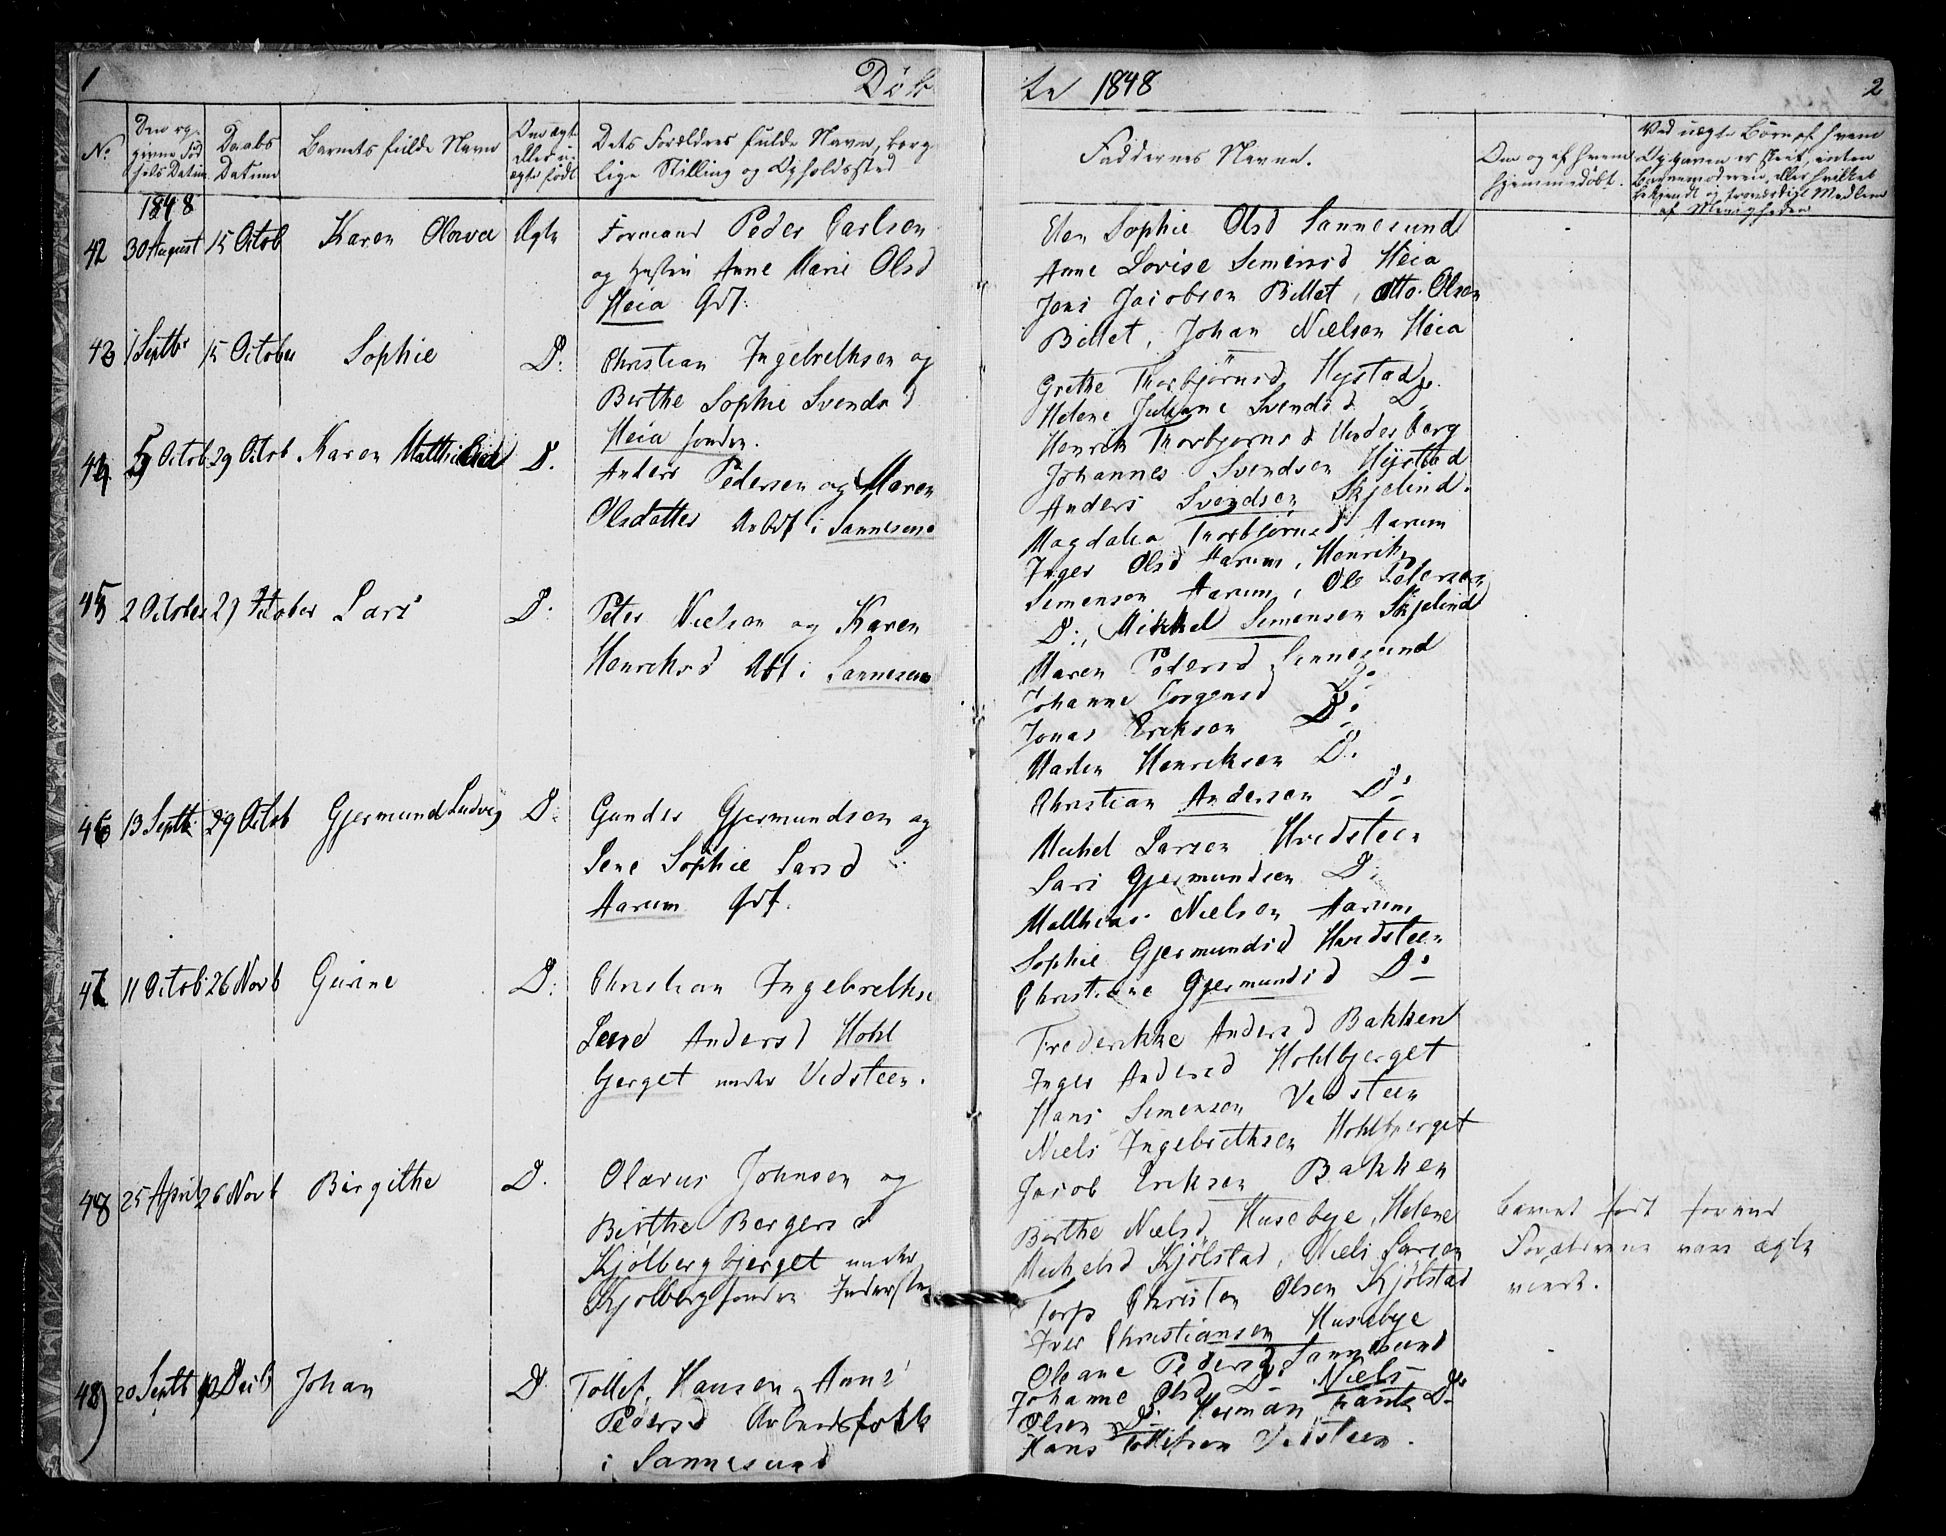 1
Døb
te 1848
2
No
Den op-
givne Fød
sels Datum
Daabs
Datum
Barnets fulde Navn
Om ægt
eller u-
ægte født
Dets Forældres fulde Navn, borg
lige Stilling og Opholdssted
Faddernes Navne.
Om og af hvem
hjemmedøbt.
Ved uægte Børn af hvem
Opgaven er skeet, enten
Barnemoderen, eller hvilket
bekjendt og troværdigt Medlem
af Menigheden
1848
42 30 August 15 Octob Karen Olava Ægte Formand Peder Carlsen
og Hustru Anne Marie Olsd
Heia Gdf.
Elen Sophie Olsd Sannesund
Anne Lovise Semensd Heia
Jens Jacobsen Billet, Otto Olsen
Billet, Johan Nielsen Heia
43 1 Septbr 15 October Sophie D: Christian Ingebrethsen og
Berthe Sophie Svendsd
Heia
Grethe Thorbjørnsd Hystad
Helene Juliane Svendsd D.
Henrik Thorbjørns
Johannes Svendsen Hystad
Anders Svendsen Skjelind.
44 5 Octob 29 Octob Karen Matthea D. Anders Pedersen og Maren
Olsdatter Arbdf i Sannesund
Magdalia Thorbjørnsd Aarum
Inger Olsd Aarum, Henrik
Semensen Aarum, Ole Petersen
D:, Mikkel Semensen Skjelind
45 2 October 29 October Lars D: Peter Nielsen og Karen
Henriksd Abf i Sannesun
Maren Pedersd Sannesund
Johanne Jørgensd D:
Jonas Eriksen D:
Martin Henriksen D:
Christian Andersen D:
46 13 Septb 29 Octob Gjermund Ludvig D: Gunder Gjermundsen og
Lene Sophie Larsd
Aarum Gdf.
Michel Larsen Hvidsteen
Lars Gjermundsen D:
Matthias Nielsen Aarum
Sophie Gjermundsd Hvidsteen
Christiane Gjermundsd D:
47 11 Octob 26 Novb Gurine D: Christian Ingebrethse
Lene Andersd Hohl
bjerget under Vedsteen.
Frederikke Andersd Bakken
Inger Andersd Hohlbjerget
Hans Semensen Vedsteen
Niels Ingebrethsen Hohlbjerget
Jacob Eriksen Bakken
48 25 April 26 Novb Birgithe D. Olavus Johnsen og
Birthe Borgersd
Kjølbergbjerget under
Kjølberg
Berthe Nielsd Husebye, Helene
Michelsd Kjølstad, Niels Larsen
Torp Christen Olsen Kjølstad
Iver Christiansen Husebye
Barnet født forend
Forældrene vare ægte
viede.
48) 20 Septb 10 Decb Johan D. Tollef Hansen Anne
Pedersd Arbeidsfolk
i Sannesund
Oleane Pedersd Sannesund
Johanne Olsd D: Niels
Olsen D: Herman Frantz D:
Hans Tollefsen Vedsteen.